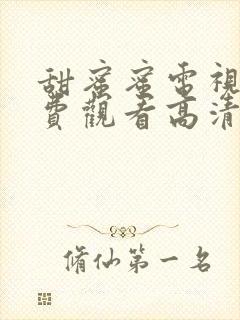 甜蜜蜜電視
費觀看高清
脩仙第一名